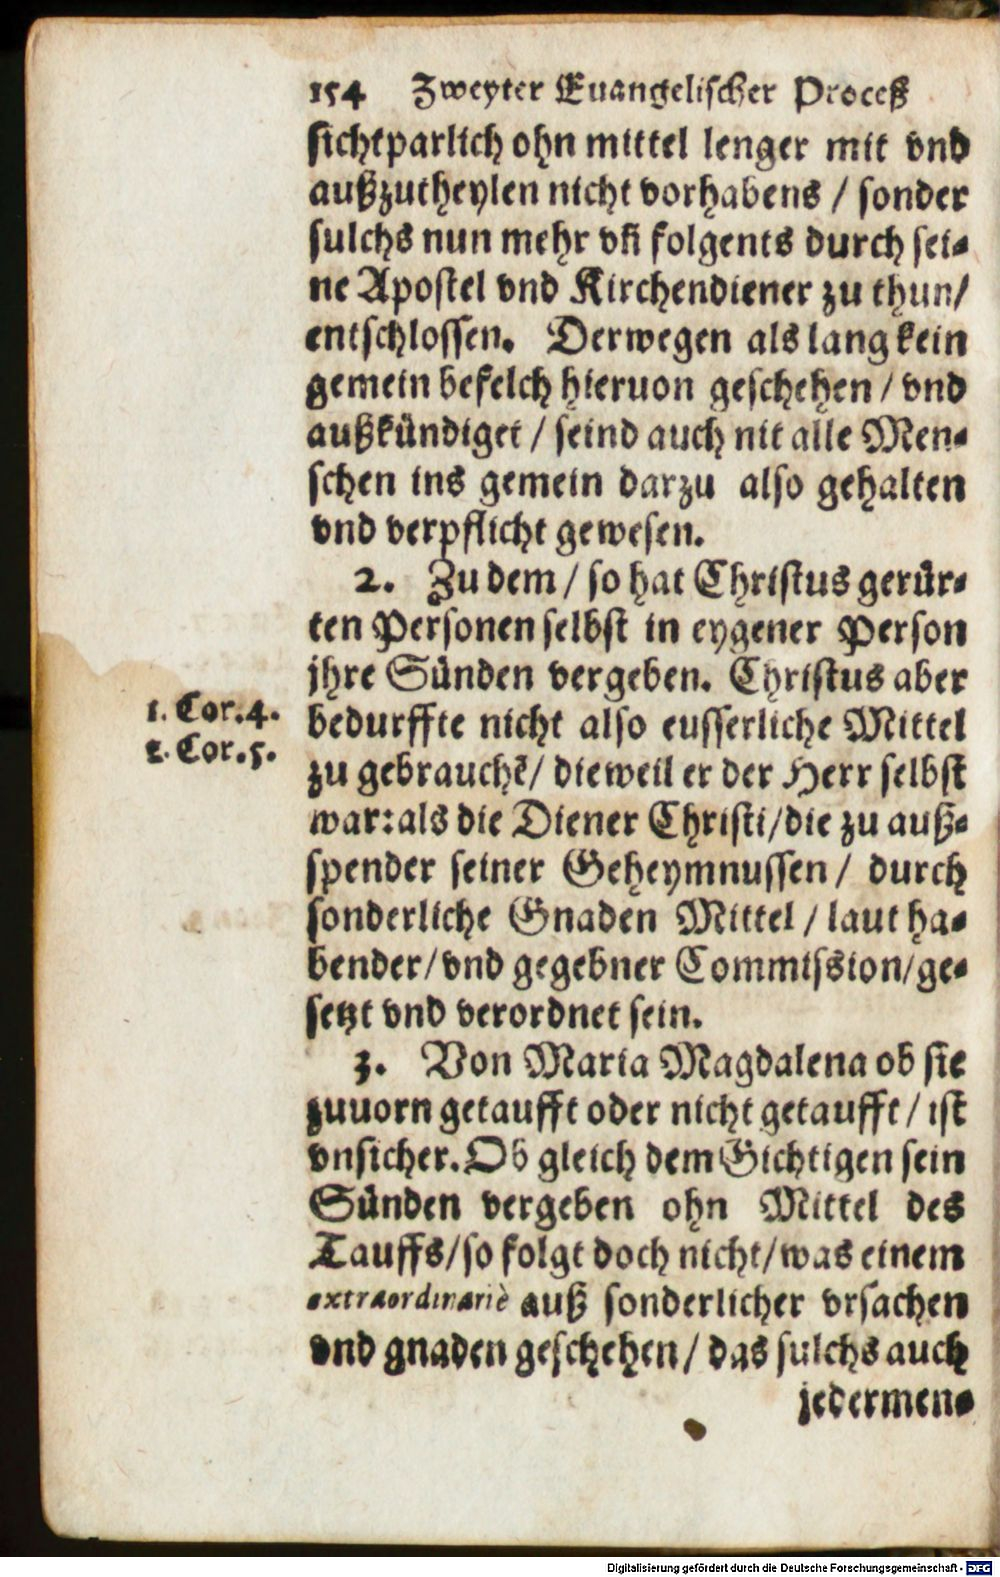 154 Zweyter Euangelischer Proceß
sichtparlich ohn mittel lenger mit vnd
außzutheylen nicht vorhabens / sonder
sulchs nun mehr vñ folgents durch sei-
ne Apostel vnd Kirchendiener zu thun/
entschlossen. Derwegen als lang kein
gemein befelch hieruon geschehen / vnd
außkündiget / seind auch nit alle Men-
schen ins gemein darzu also gehalten
vnd verpflicht gewesen.
2. Zu dem / so hat Christus gerür-
ten Personen selbst in eygener Person
jhre Sünden vergeben. Christus aber
1. Cor.4.
bedurffte nicht also eusserliche Mittel
2. Cor.5.
zu gebrauchē/ dieweil er der Herr selbst
war: als die Diener Christi/die zu auß-
spender seiner Geheymnussen / durch
sonderliche Gnaden Mittel / laut ha-
bender/vnd gegebner Commission/ge-
setzt vnd verordnet sein.
3. Von Maria Magdalena ob sie
zuuorn getaufft oder nicht getaufft / ist
vnsicher. Ob gleich dem Gichtigen sein
Sünden vergeben ohn Mittel des
Tauffs/so folgt doch nicht/was einem
extraordinariè auß sonderlicher vrsachen
vnd gnaden geschehen / das sulchs auch
jedermen-
Digitalisierung gefördert durch die Deutsche Forschungsgemeinschaft - DFG